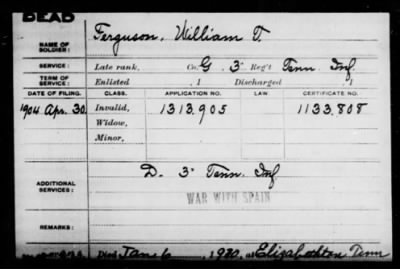 DEAD
NAME OF SOLDIER: Ferguson, William T.
SERVICE: Late rank, Co. G 3" Reg't Tenn. Inf
TERM OF SERVICE: Enlisted , 1 Discharged , 1
DATE OF FILING. CLASS. APPLICATION NO. LAW. CERTIFICATE NO.
1904 Apr. 30 Invalid, 1313.905 1133.808
Widow,
Minor,
ADDITIONAL SERVICES: D. 3" Tenn. Inf
WAR WITH SPAIN
REMARKS:
Died , 1930, at Elizabethton, Tenn